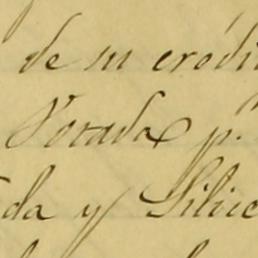 de su crédi
Posada p.
da y Silice